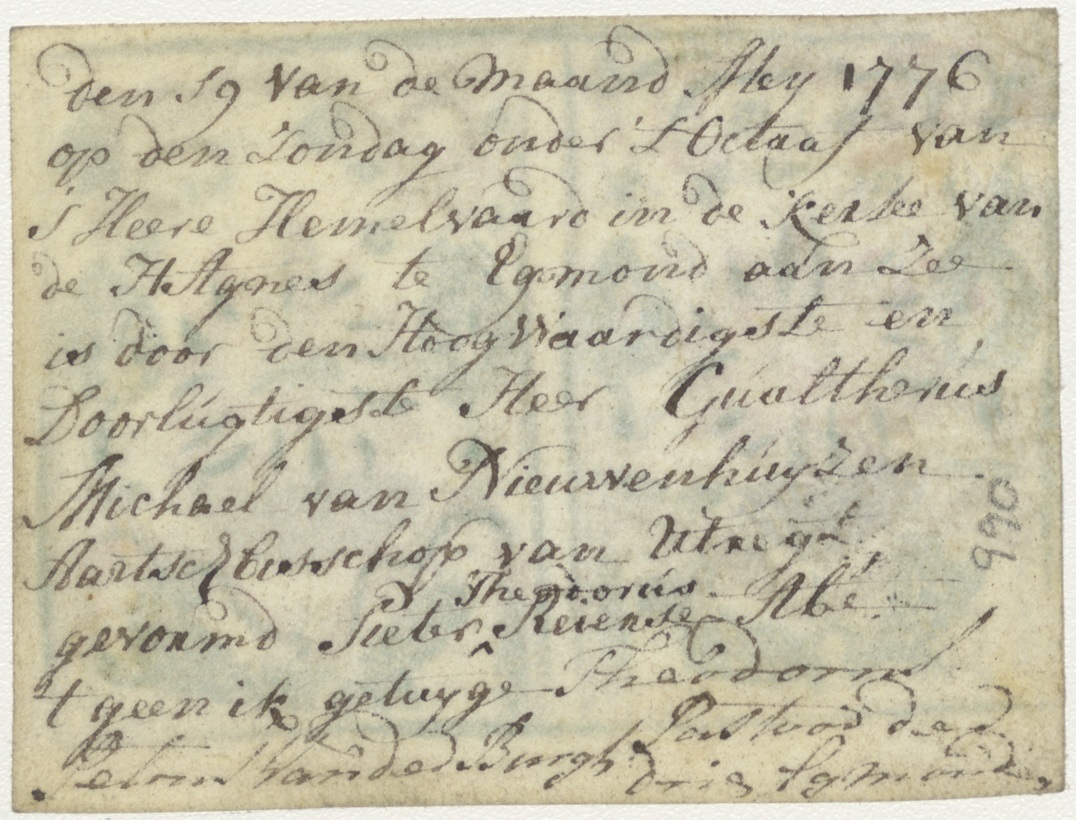 den 19 van de Maand Mey 1776
op den Zondag onder 't Octaaf van
's Heere Hemelvaard in de kerke van
de H Agnes te Egmond aan Zee
is door den HoogWaardigste en
Doorlugtigste Heer Gualtherus
Michael van Nieuwenhuyzen
Aartschbisschop van Utregt
Theodorus
gevormd Pieter ^ Abé
't geen ik getuyge Theodorus
van der Burgh Pastoor der
drie Egmonden
990